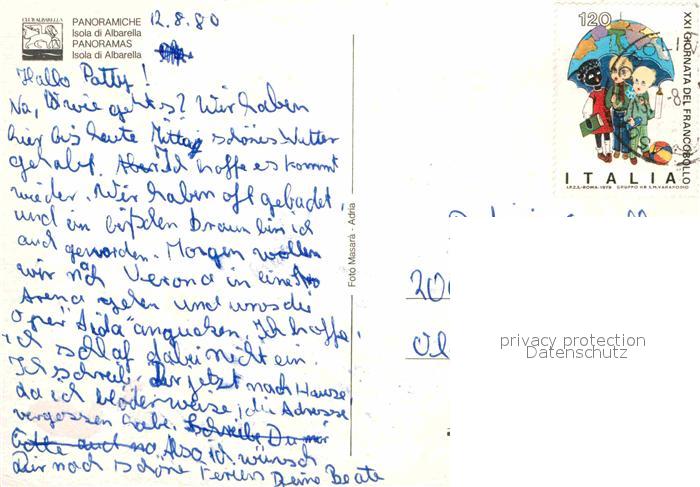 CLUB ALBARELLA
PANORAMICHE
Isola di Albarella
PANORAMAS
Isola di Albarella
12.8.80
Hallo Patty!
Na, wie geht's? Wir haben
hier bis heute Mittag schönes Wetter
gehabt. Aber ich hoffe es kommt
wieder. Wir haben oft gebadet,
und ein bißchen braun bin ich
auch geworden. Morgen wollen
wir nach Verona in eine
Arena gehen und uns die
Oper "Aida" angucken. Ich hoffe,
ich schlaf dabei nicht ein.
Ich schreib Dir jetzt nach Hause
da ich blöderweise die Adresse
vergessen habe. Schreibe Du mir
bitte auch no Also ich wünsch
Dir noch schöne Ferien Deine Beate
Foto Masarà - Adria
120
XXI GIORNATA DEL FRANCOBOLLO
ITALIA
I.P.Z.S.-ROMA-1979 GRUPPO H8 S.M. VARAPODIO
200
privacy protection
Datenschutz